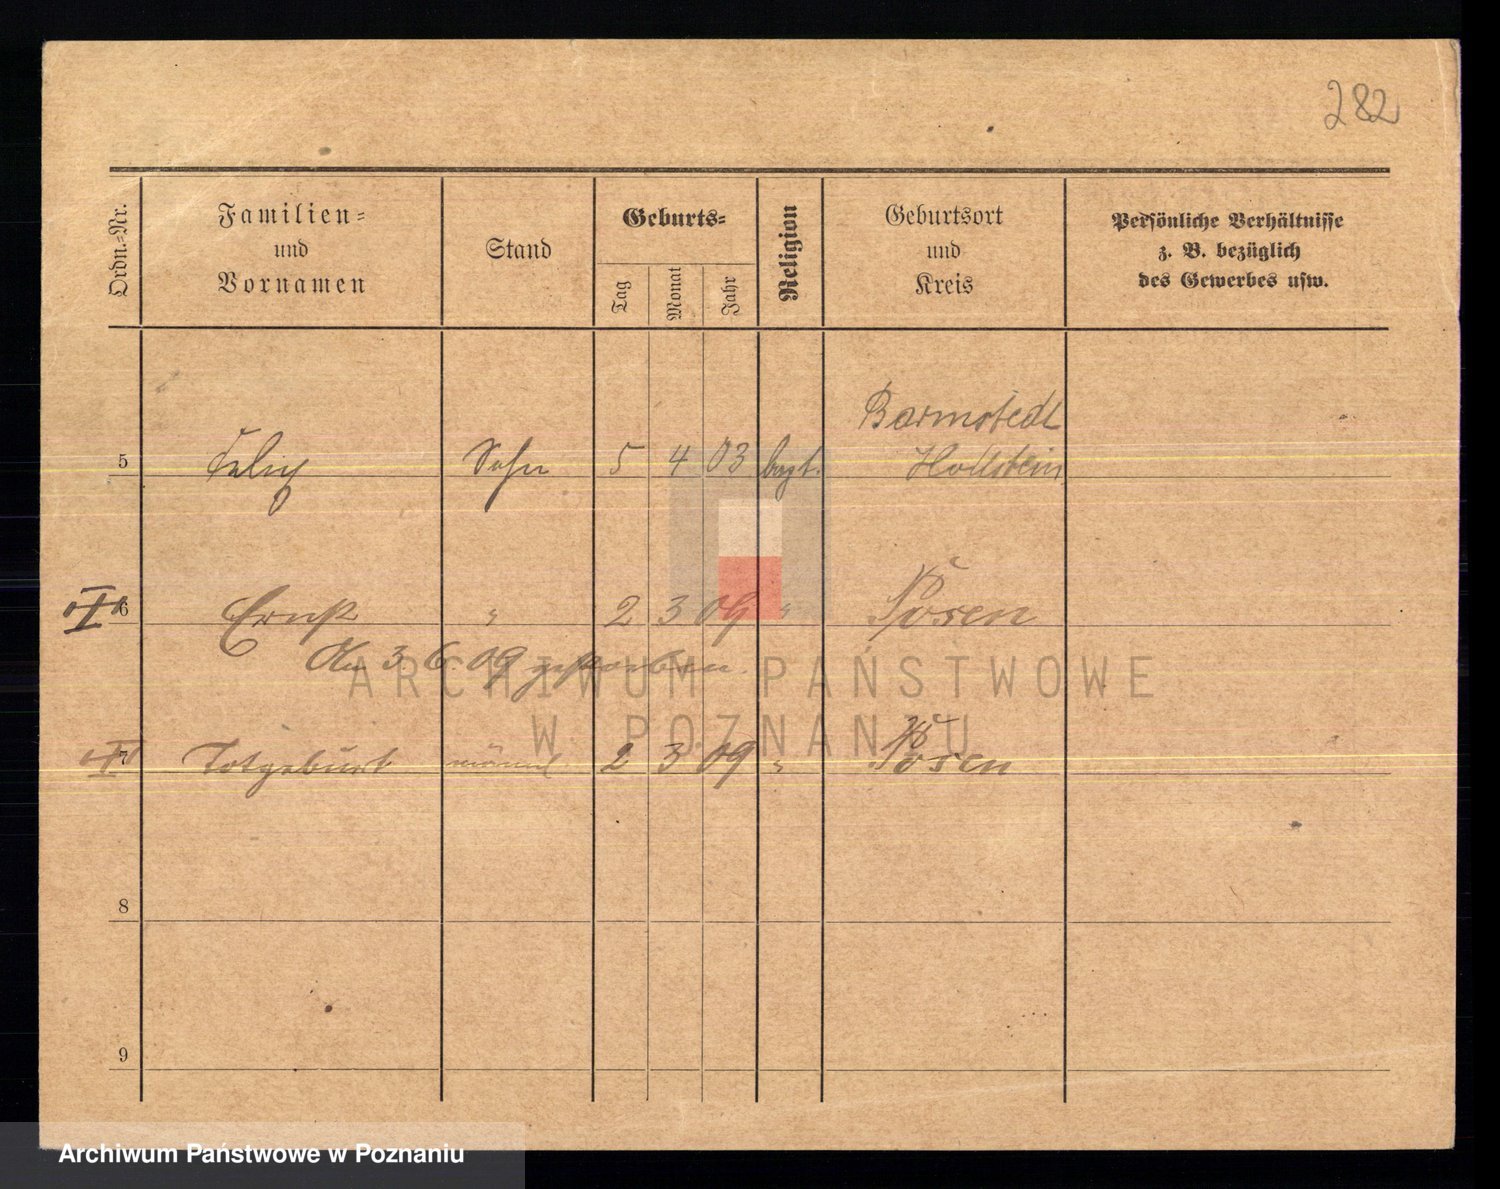 282
Ordn.-Nr.
Familien-
und
Vornamen
Stand
Geburts-
Tag
Monat
Jahr
Religion
Geburtsort
und
Kreis
Persönliche Verhältnisse
z. B. bezüglich
des Gewerbes usw.
Barmstedt
5 Felix Sohn 5 4 03 Hollstein
6 Ernst " 2 3 09 " Posen
Am 3 6 09 gestorben.
ARCHIWUM PAŃSTWOWE
W POZNANIU
7 Totgeburt männl 2 3 09 " Posen
8
9
Archiwum Państwowe w Poznaniu